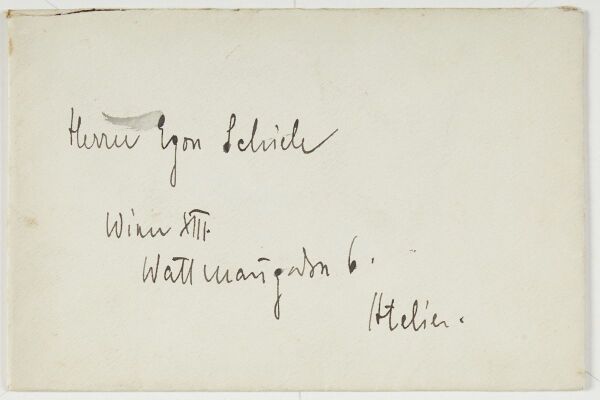 Herrn Egon Schiele
Wien XIII.
Wattmanngasse 6.
Atelier.